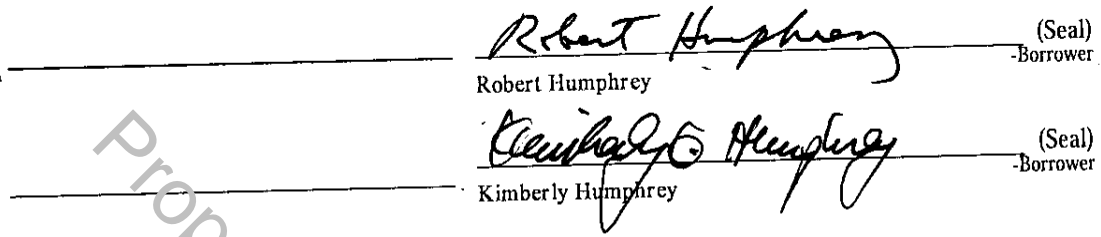 Robert Humphrey (Seal)
-Borrower
Robert Humphrey
Kimberly Humphrey (Seal)
-Borrower
Kimberly Humphrey
Prop